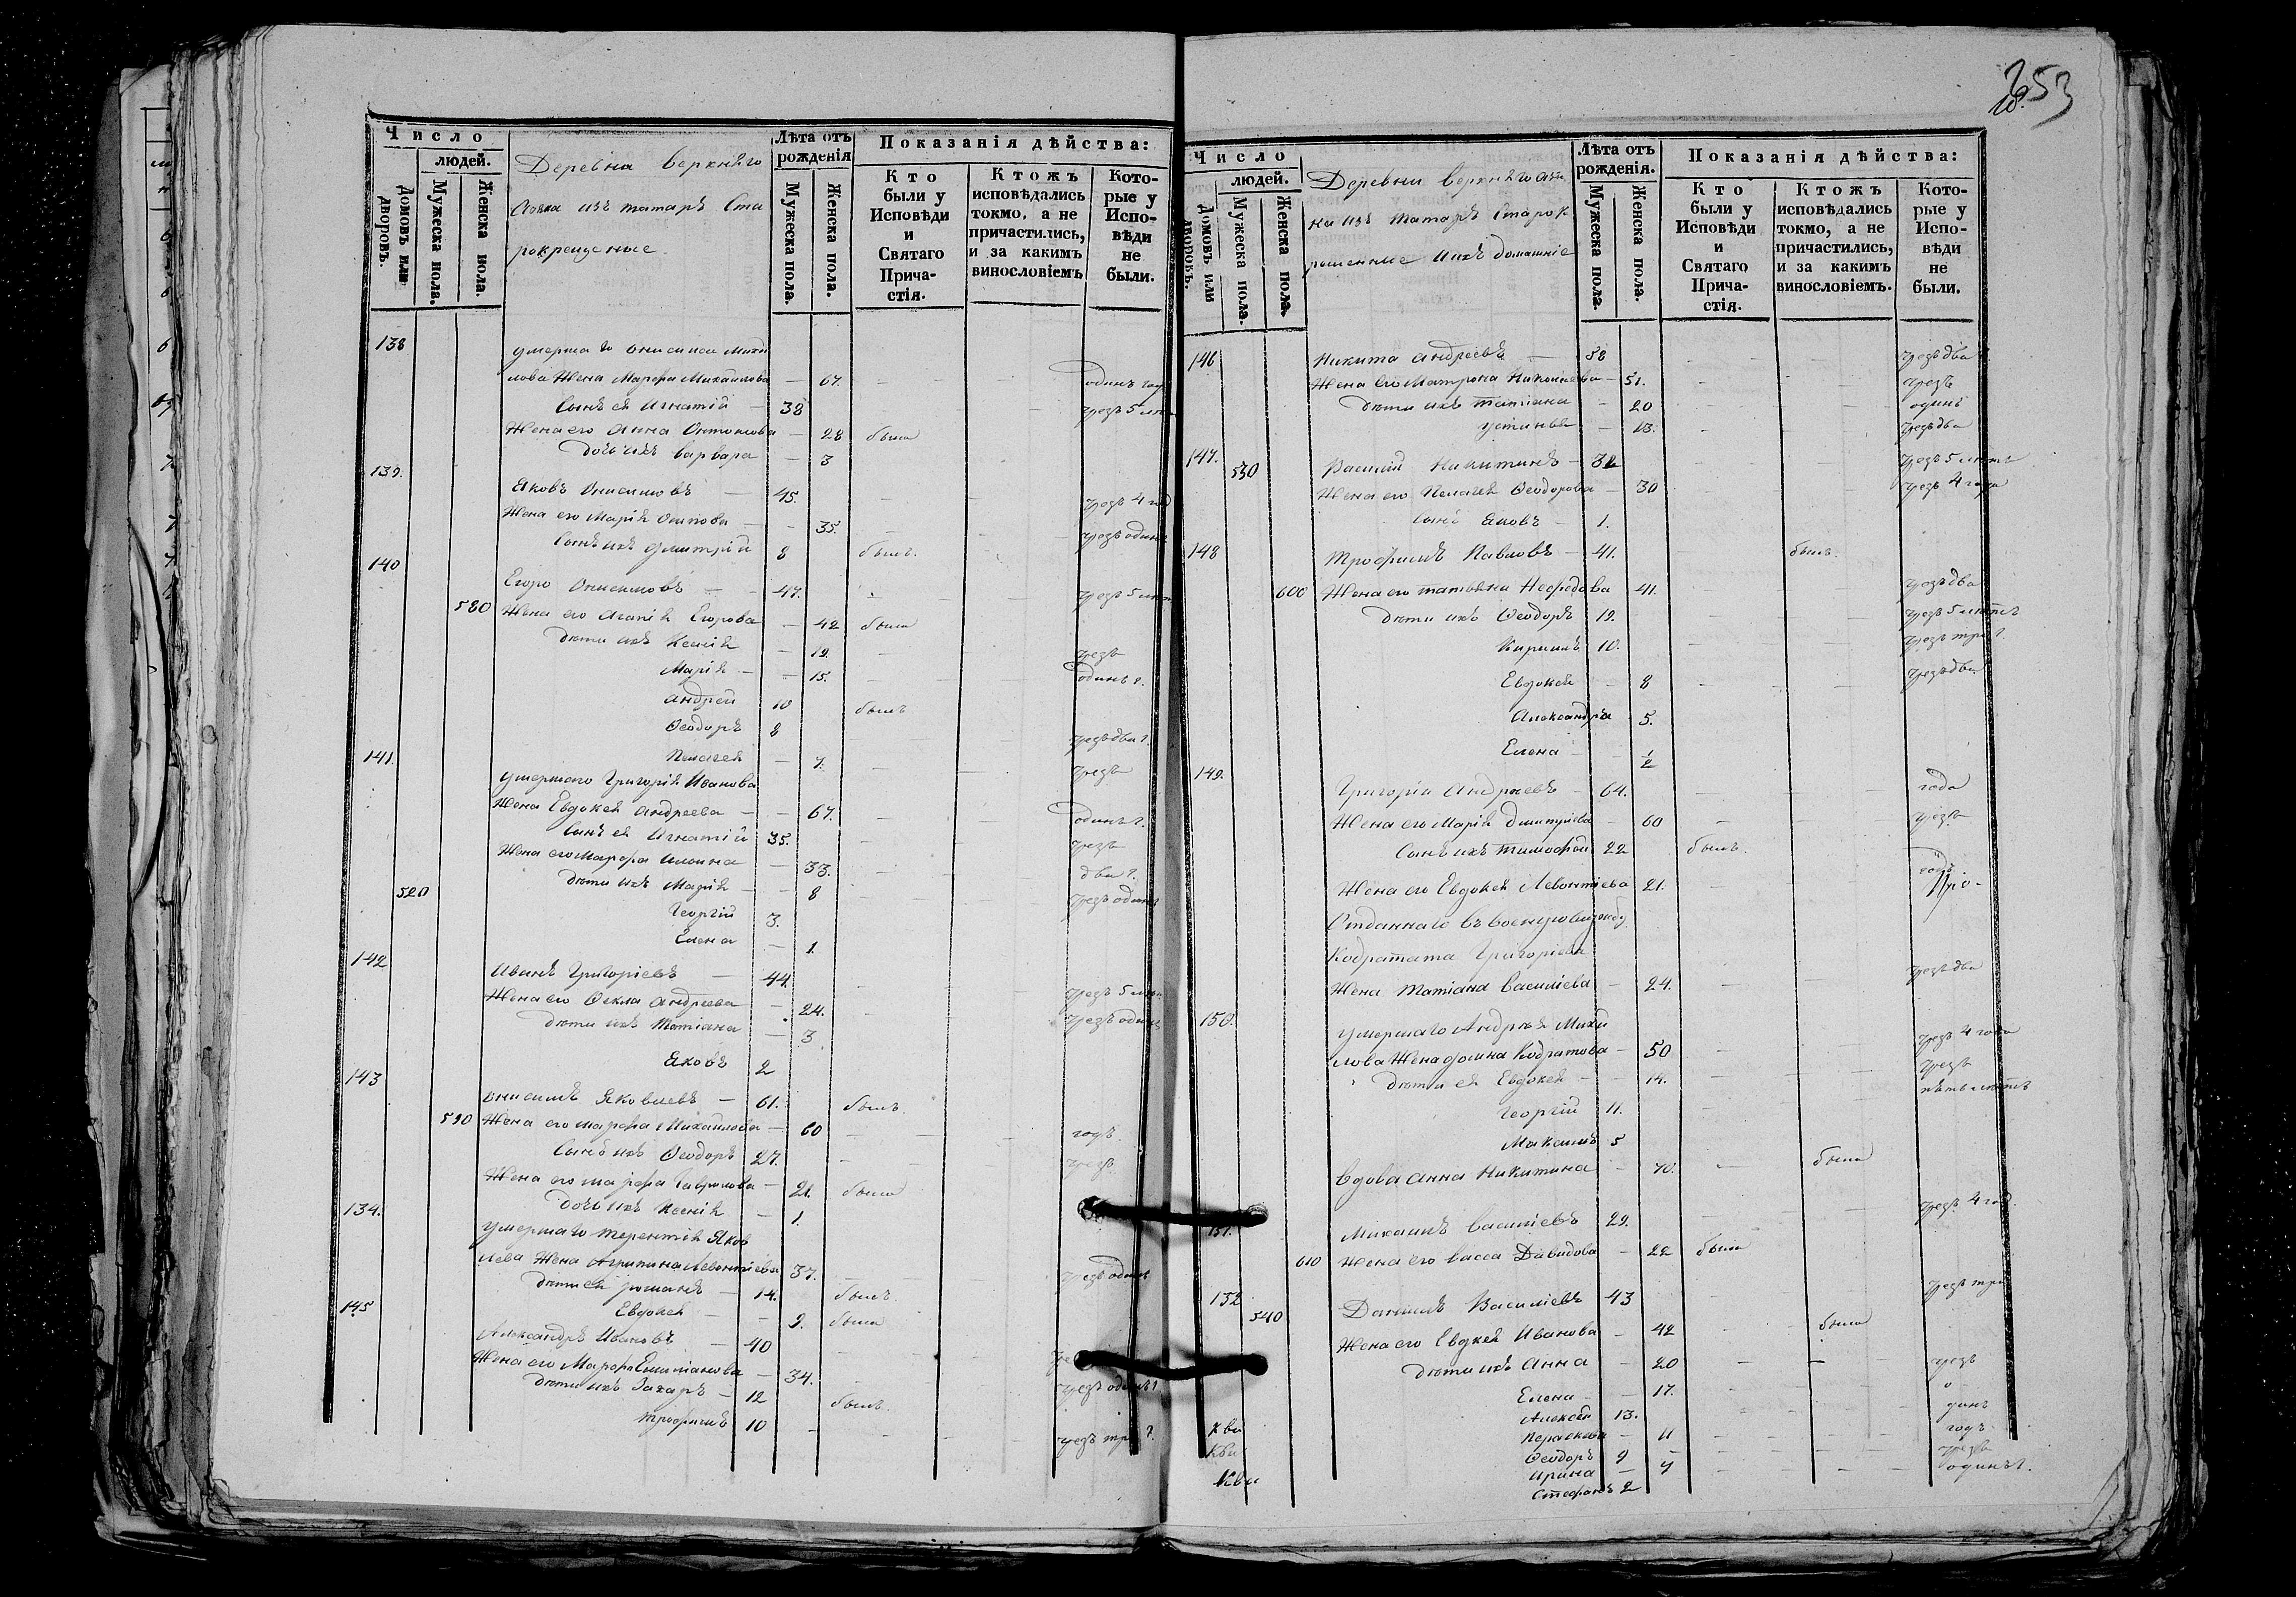 253
Число
людей.
Домовъ или дворовъ.
Мужеска пола.
Женска пола.
Деревна Верхняго
Азяка изъ татаръ Ста
рокрещеные
Лѣта отъ рожденія
Мужеска пола.
Женска пола.
Показанія дѣйства:
Кто были у Исповѣди и Святаго Прича-стія.
Ктожъ исповѣдались токмо, а не причастились, и за какимъ винословіемъ
Кото-рые у Испо-вѣди не были.
138 умершаго Онисима Михай
лова жена Марфа Михаилова — 67. одинъ год
Сынъ ея Игнатій — 38 чрезъ 5 лѣт
Жена его Анна Антонова — 28 была
дочь ихъ Варвара — 3
139.
Яковъ Онисимовъ — 45. чрезъ 4 год
Жена его Марія Осипова — 35. чрезъ одинъ
Сынъ ихъ Димитрій 8 былъ.
140
Егоръ Онисимовъ — 47. чрезъ 5 лѣт
580 Жена его Агапія Егорова — 42 была
дѣти ихъ Ксенія — 19. чрезъ
Марія — 15. одинъ г.
Андрей 10 былъ
Ѳеодоръ 8 чрезъ два г.
141. Пелагея — 7. чрезъ
умершаго Григорія Иванова
Жена Евдокея Андреева — 67. одинъ г.
Сынъ ея Игнатій 35. чрезъ
Жена его Марфа Ильина — 33. два г.
520 дѣти ихъ Марія — 8 чрезъ одинъ
Георгій 3.
Елена — 1.
142
Иванъ Григоріевъ — 44. чрезъ 5 лѣт
Жена его Ѳекла Андреева — 24. чрезъ одинъ
дѣти ихъ Татіана — 3
Яковъ 2
143
Онисимъ Яковлевъ — 61. былъ.
590 Жена его Марфа Михаилова — 60 годъ.
Сынъ ихъ Ѳеодоръ 27. чрезъ
Жена его Марфа Гаврилова — 21. была
134. дочь ихъ Ксенія — 1.
умершаго Терентія Яков
лева Жена Агрипина Левонтіева 37. чрезъ одинъ
дѣти ея Романъ — 14. былъ.
145 Евдокея — 9. была
Александръ Ивановъ — 40
Жена его Марфа Емиліанова — 34. чрезъ одинъ г
дѣти ихъ Захаръ — 12 былъ.
Трофимъ 10 чрезъ три г.
Число
людей.
Домовъ или дворовъ.
Мужеска пола.
Женска пола.
Деревни Верхнего Азя
ка изъ татаръ Старок
рещенные ихъ домашніе
Лѣта отъ рожденія.
Мужеска пола.
Женска пола.
Показанія дѣйства:
Кто были у Исповѣди и Святаго Прича-стія.
Ктожъ исповѣдались токмо, а не причастились, и за какимъ винословіемъ.
Кото-рые у Испо-вѣди не были.
146 Никита Андреевъ — 58 чрезъ два г.
Жена его Матрона Николаева — 51. чрезъ
дѣти ихъ Татіана — 20 одинъ
Устинья — 13. чрезъ два
147. 530 Василій Никитинъ — 32 чрезъ 5 лѣтъ
Жена его Пелагея Ѳеодорова — 30 чрезъ 4 года
сынъ Яковъ — 1.
148 Трофимъ Павловъ — 41. былъ.
600 Жена его Татьяна Нефедова 41. чрезъ два
дѣти ихъ Ѳеодоръ 19. чрезъ 5 лѣтъ
Кирилъ 10. чрезъ три г.
Евдокея — 8 чрезъ два
Александра 5.
Елена — 1/2
149.
Григорій Андреевъ — 64. года
Жена его Марія Димитріева — 60 чрезъ
Сынъ ихъ Тимофей 22 былъ.
Жена его Евдокея Левонтіева 21. годъ
Отданнаго въ военную службу
Кодратата Григоріева
Жена Татіана Василіева — 24. чрезъ два
150.
умершаго Андрея Михай
лова Жена Кодратова — 50 чрезъ 4 года
дѣти ея Евдокея — 14. чрезъ
Георгій 11. пять лѣтъ
Максимъ 5
Вдова Анна Никитина — 70. была
151. Михаилъ Василіевъ 29. чрезъ 4 год
610 Жена его Васса Давидова — 22 была
152
540 Данилъ Василіевъ 43 чрезъ три
Жена его Евдокея Иванова — 42 была
дѣти ихъ Анна — 20 чрезъ
Елена — 17. о
Алексѣй 13. динъ
Параскева — 11 годъ
Ѳеодоръ 9 чрезъ
Ирина — 7 одинъ г.
Стефанъ 2